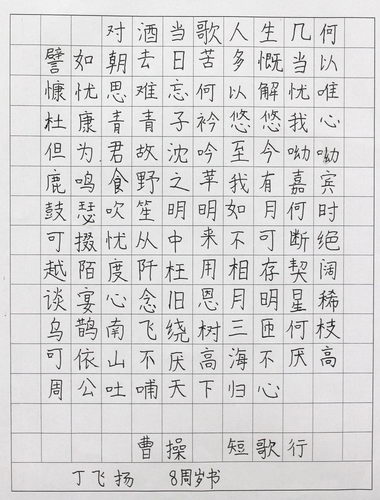 对酒当歌人生几何
譬如朝去日苦多慨当以
慷忧思难忘何以解忧唯
杜康青青子衿悠悠我心
但为君故沈吟至今呦呦
鹿鸣食野之苹我有嘉宾
鼓瑟吹笙明明如月何时
可掇忧从中来不可断绝
越陌度阡枉用相存契阔
谈宴心念旧恩月明星稀
乌鹊南飞绕树三匝何枝
可依山不厌高海不厌高
周公吐哺天下归心
曹操 短歌行
丁飞扬 8周岁书